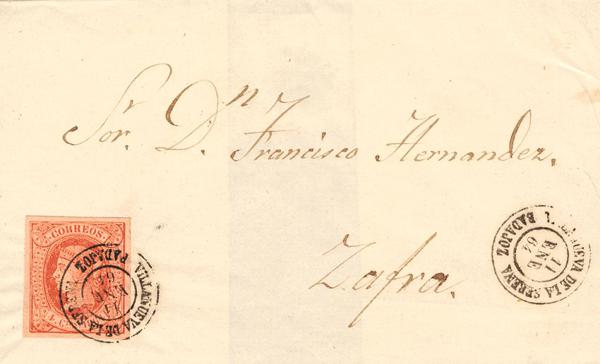 Sor. Dn. Francisco Hernandez.
Zafra.
CORREOS
VILLANUEVA DE LA SERENA
BADAJOZ
11
ENE
64
VILLANUEVA DE LA SERENA
BADAJOZ
11
ENE
64